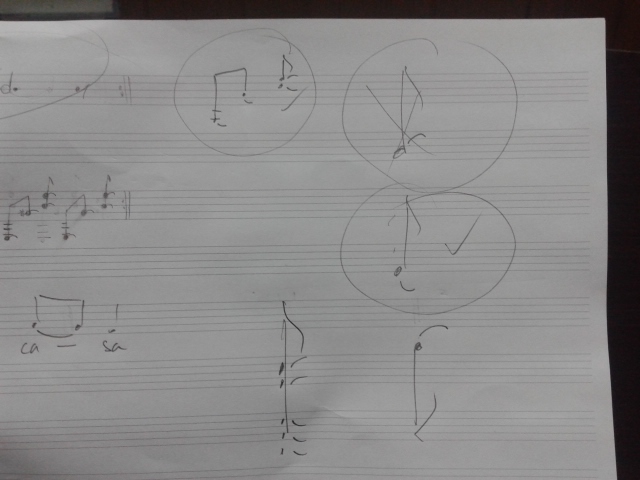 d.
ca — sa